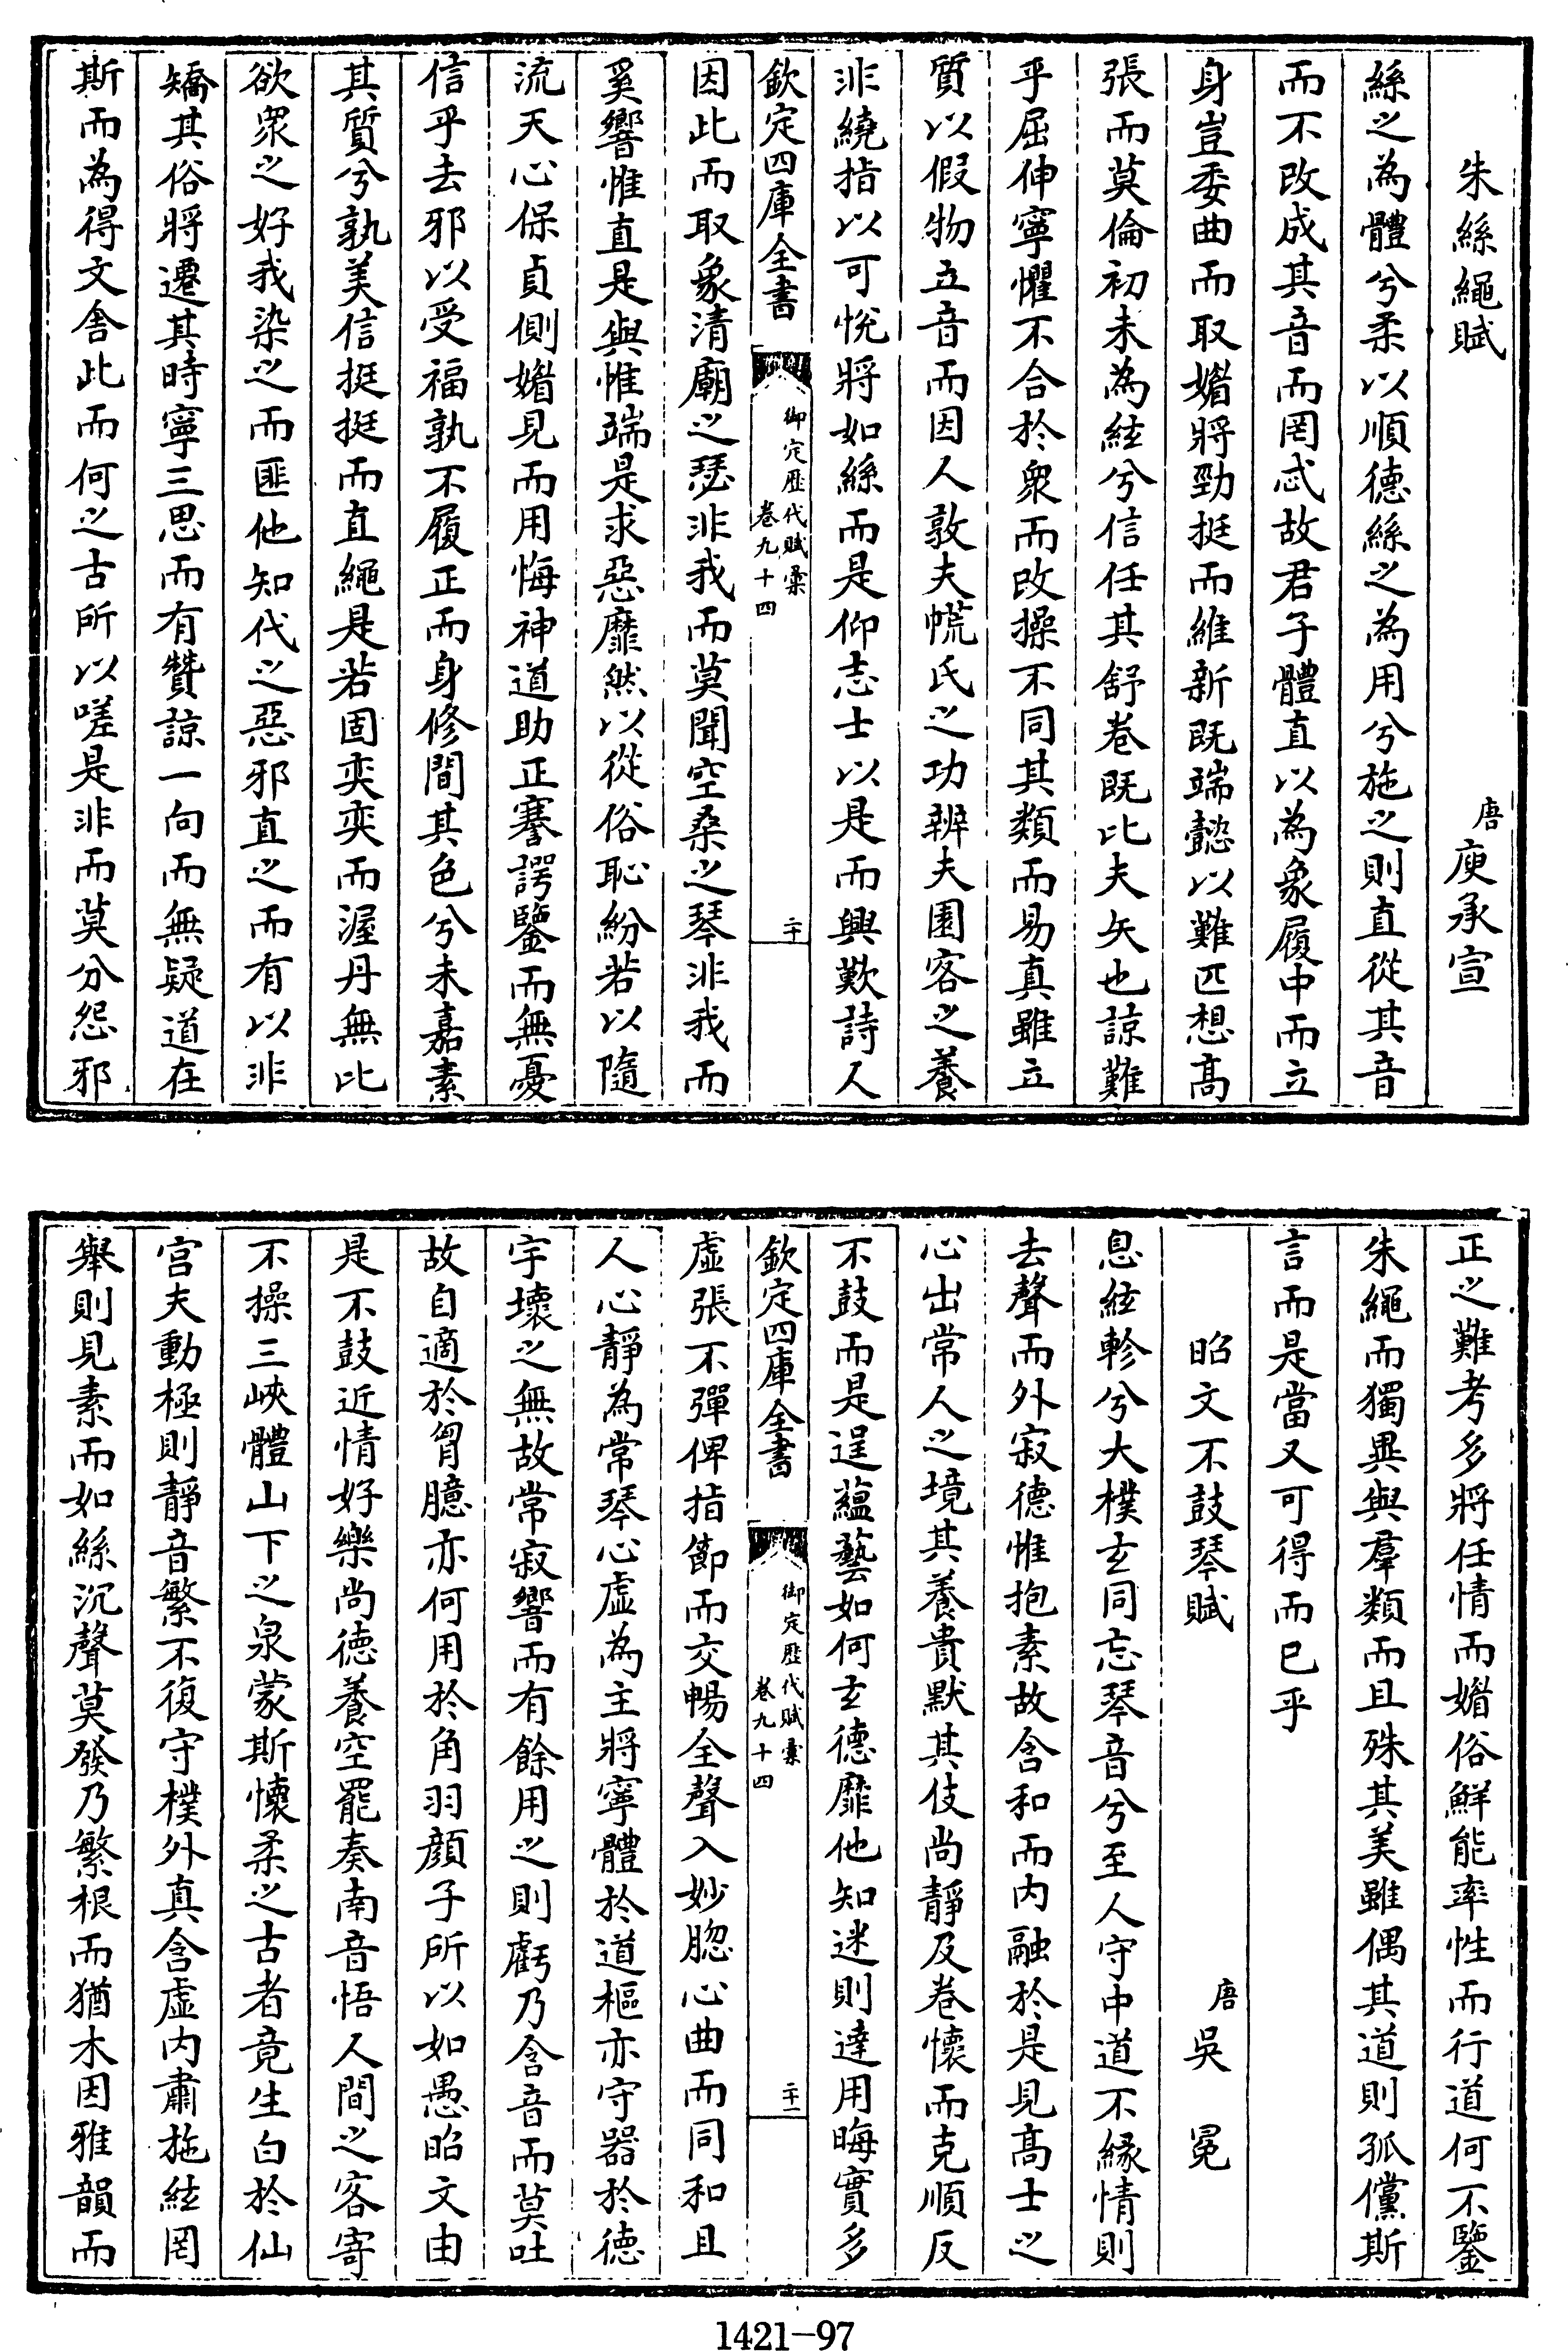 朱絲繩賦 唐庾承宣
絲之為體兮柔以順德絲之為用兮施之則直從其音
而不改成其音而罔忒故君子體直以為象履中而立
身豈委曲而取媚將勁挺而維新既端懿以難匹想高
張而莫倫初未為絃兮信任其舒卷既比夫矢也諒難
乎屈伸寧懼不合於衆而改操不同其類而易真雖立
質以假物五音而因人敦夫㡃氏之功辨夫園客之養
非繞指以可悅將如絲而是仰志士以是而興歎詩人
欽定四庫全書 御定歷代賦彙 卷九十四 二十
因此而取象清廟之瑟非我而莫聞空桑之琴非我而
奚響惟直是與惟端是求惡靡然以從俗恥紛若以隨
流天心保貞側媚見而用悔神道助正謇諤鑒而無憂
信乎去邪以受福孰不履正而身修間其色兮未嘉素
其質兮孰美信挺挺而直繩是若固奕奕而渥丹無比
欲衆之好我染之而匪他知代之惡邪直之而有以非
矯其俗將遷其時寧三思而有贊諒一向而無疑道在
斯而為得文舍此而何之古所以嗟是非而莫分怨邪
正之難考多將任情而媚俗鮮能率性而行道何不鑒
朱繩而獨異與羣類而且殊其美雖偶其道則孤儻斯
言而是當又可得而已乎
昭文不鼓琴賦 唐吳冕
息絃軫兮大樸玄同忘琴音兮至人守中道不緣情則
去聲而外寂德惟抱素故含和而内融於是見高士之
心出常人之境其養貴默其伎尚靜及卷懷而克順反
不鼓而是逞蘊藝如何玄德靡他知迷則達用晦實多
欽定四庫全書 御定歷代賦彙 卷九十四 二十一
虛張不彈俾指節而交暢全聲入妙脗心曲而同和且
人心靜為常琴心虛為主將寧體於道樞亦守器於德
宇壞之無故常寂響而有餘用之則虧乃含音而莫吐
故自適於胷臆亦何用於角羽顔子所以如愚昭文由
是不鼓近情好樂尚德養空罷奏南音悟人間之客寄
不操三峽體山下之泉蒙斯懷柔之古者竟生白於仙
宫夫動極則靜音繁不復守樸外真含虛内肅拖絃罔
舉則見素而如絲沉聲莫發乃繁根而猶木因雅韻而
1421-97